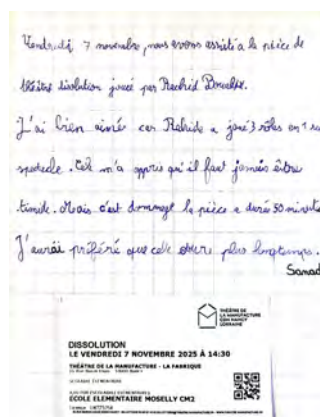 Vendredi 7 novembre, nous avons assisté a la pièce de
théâtre dissolution joué par Rachid
J'ai bien aimés car Rahide a joué 3 rôles en 1 seul
spectacle. Cela m'a appris qu'il faut jamais être
timide. Mais c'est dommage la pièce a durée 50 minute
J'aurai préféré que celle dure plus longtemps.
Samad
THÉÂTRE DE
LA MANUFACTURE
CDN NANCY
LORRAINE
DISSOLUTION
LE VENDREDI 7 NOVEMBRE 2025 À 14:30
THÉÂTRE DE LA MANUFACTURE - LA FABRIQUE
ECOLE ELEMENTAIRE MOSELLY CM2